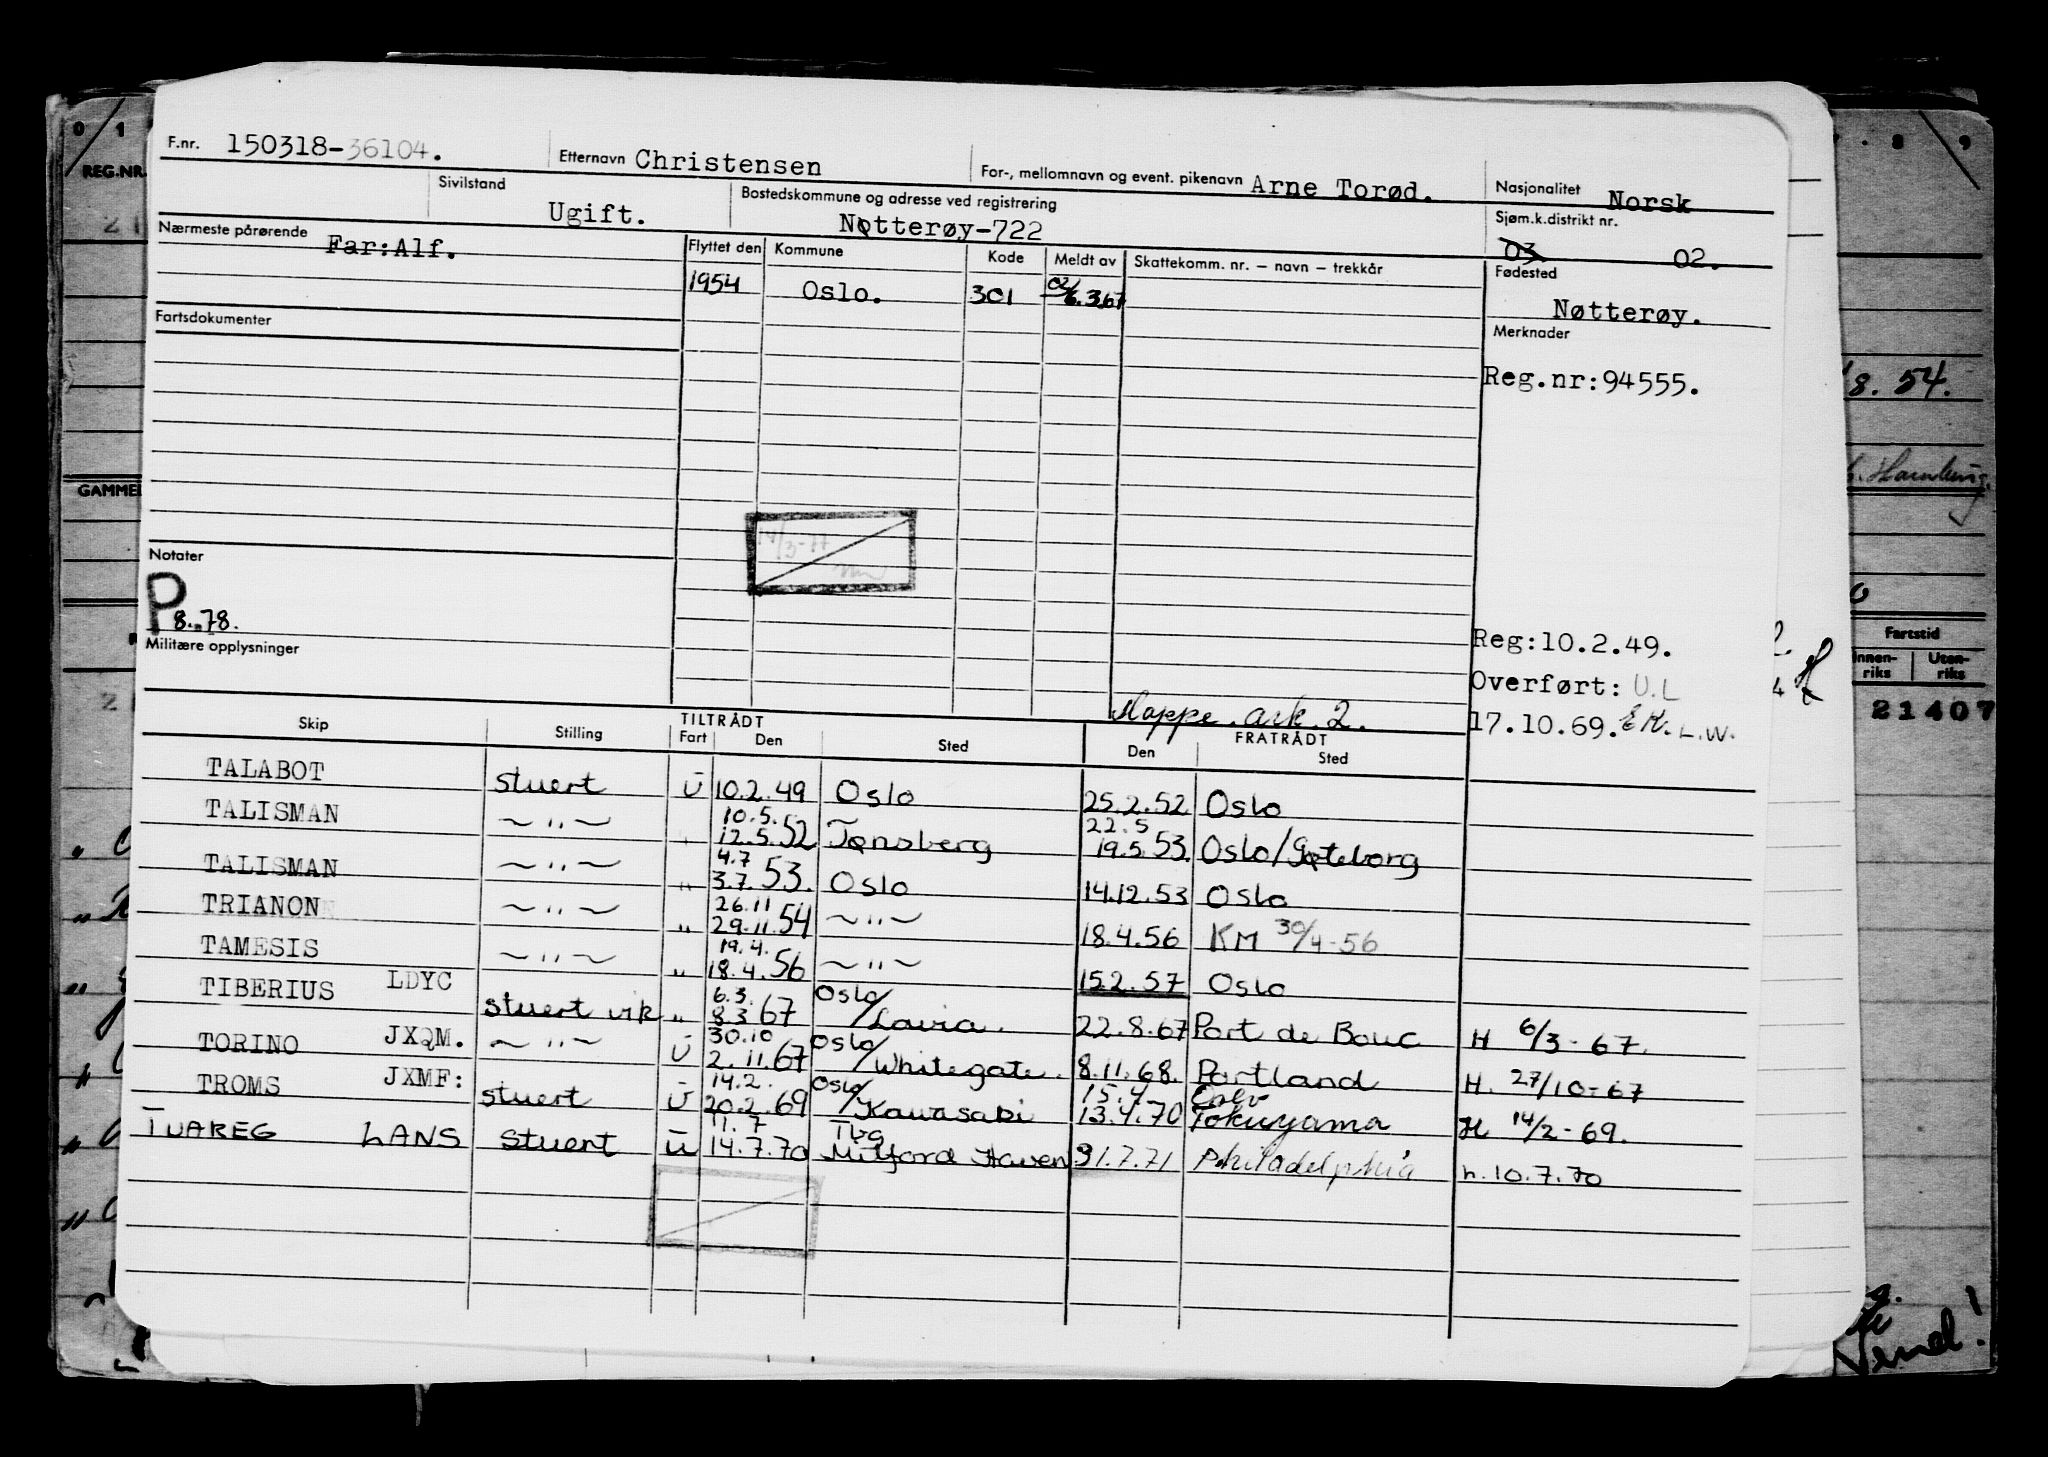 F.nr. 150318-36104. Etternavn Christensen For-, mellomnavn og event. pikenavn Arne Torød. Nasjonalitet Norsk
Sivilstand Ugift. Bostedskommune og adresse ved registrering Nøtterøy-722 Sjøm.k.distrikt nr. 03 02.
Nærmeste pårørende Far:Alf. Flyttet den Kommune Kode Meldt av Skattekomm. nr. – navn – trekkår Fødested
1954 Oslo. 301 02/6.3.67 Nøtterøy.
Fartsdokumenter Merknader
Reg.nr:94555.
14/3-77
Notater
P 8.78.
Militære opplysninger
Reg:10.2.49.
Overført: U.L
Mappe. ark. 2. 17.10.69. EK. L.W.
TILTRÅDT FRATRÅDT
Skip Stilling Fart Den Sted Den Sted
TALABOT stuert U 10.2.49 Oslo 25.2.52 Oslo
TALISMAN ~"~ " 10.5. 12.5.52 Tønsberg 22.5 19.5.53. Oslo/Gøteborg
TALISMAN ~"~ " 4.7 3.7.53. Oslo 14.12.53 Oslo
TRIANON ~"~ " 26.11 29.11.54 ~"~ 18.4.56 KM 30/4-56
TAMESIS ~"~ " 19.4. 18.4.56 ~"~ 15.2.57 Oslo
TIBERIUS LDYC stuert vik " 6.3. 8.3.67 Oslo/Lavia. 22.8.67 Port de Bouc H 6/3-67.
TORINO JXQM. ~"~ U 30.10 2.11.67 Oslo/Whitegate. 8.11.68. Portland H. 27/10-67
TROMS JXMF: stuert U 14.2. 20.2.69 Oslo/Kawasaki 15.4. 13.4.70 Oslo Tokuyama H 14/2-69.
TUAREG LANS stuert U 11.7 14.7.70 Tbg Milford Haven 31.7.71 Philadelphia h.10.7.70
0 1 8 9
REG.NR.
GAMMEL
8. 54.
Hamburg.
Fartstid
Innen-riks Uten-riks
21407
Vend!